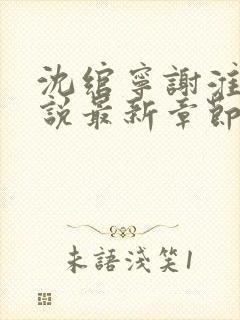 沈綰寧謝淮
說最新章節
未語淺笑1